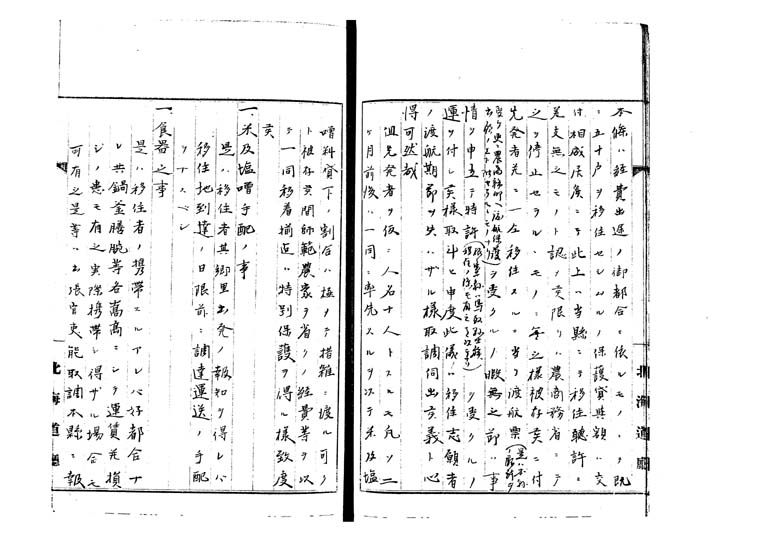 本條ハ経費出途ノ御都合ニ依レモノハ既
ニ五十戸ヲ移住セシムルノ保護實興額ハ交
付相成居矣ニ付此上ハ当縣ニテ移住聴許
差支無之モノト認メ
之ヲ停止セラルヽモノハ無之様被存矣ニ付
先発者ニ一左移住スルニ当リ渡航票
保護ヲ受クルノ暇無之節ハ事
情ヲ申立テ特許ヲ受クルノ
運ヲ付シ矣様取斗ヒ申度此儀ハ移住志願者
ノ渡航期節ヲ失ハザル様取調伺出矣義ト心
得可然哉
但先発者ヲ仮ニ人名十人トスルモ凡ソ二
ヶ月前後ハ一同ニ率先スルヲ以テ米及塩
噌料貸下ノ割合ハ極メテ措雜ニ渡ル可シ
ト被存矣間師範農家ヲ省クノ経費等ヲ以
テ一同移着揃迄ハ特別保護ヲ得ル様致度
矣
一米及塩噌手配ノ事
是ハ移住者其郷里出発ノ報知ヲ得レハ
移住地到達ノ日限前ニ調達運送ノ手配
ヲナスベシ
一食器之事
是ハ移住者ノ携帯スルアレバ好都合ナ
レ共鍋釜膳腕等各嵩高ニシテ運賃荒損
シノ患モ有之実際携帯シ得ザル場合モ
可有之是等ハ出張官吏能取調本縣ニ報
北海道廳
北海道廳